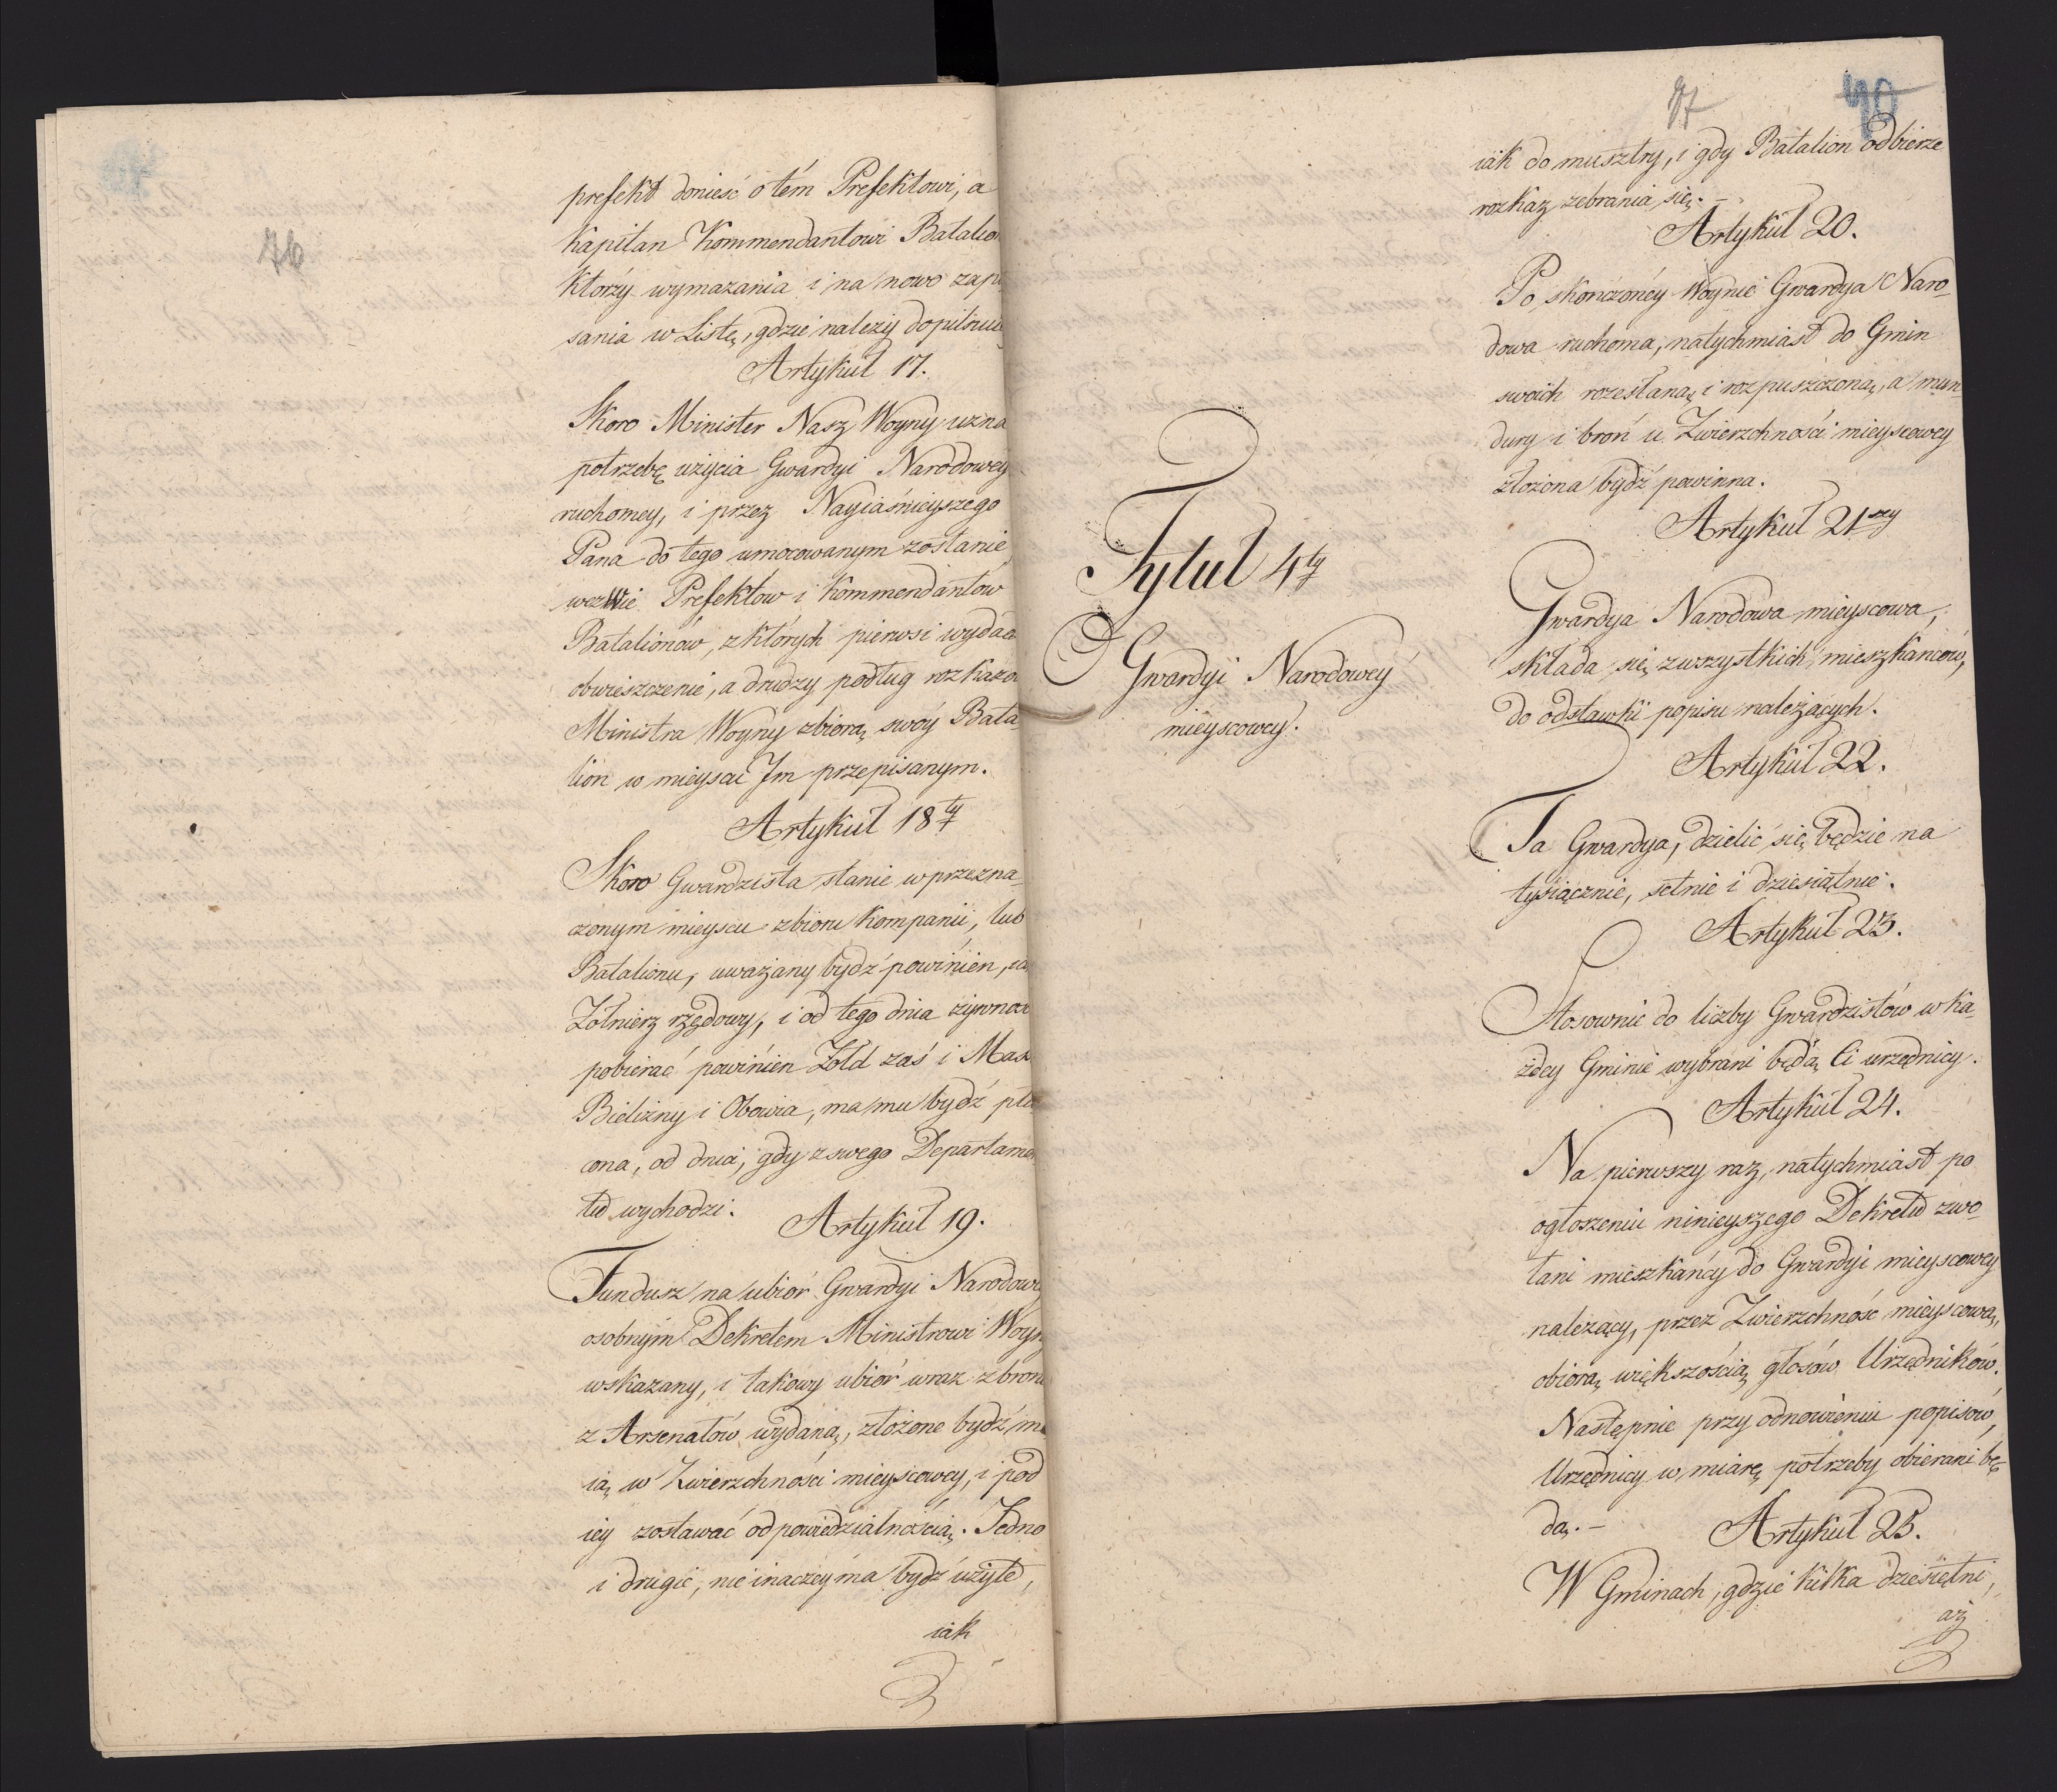 76
prefekt donieść o tém Prefektowi, a
Kapitan Kommendantowi Batalio
którzy wymazania i na nowo zapi
sania w Listę, gdzie należy dopilnui
Artykuł 17.
Skoro Minister Nasz Woyny uzna
potrzebę użycia Gwardyi Narodowey
ruchomey, i przez Nayiaśnieyszego
Pana do tego umocowanym zostanie,
wezwie Prefektow i Kommendantow
Batalionów, z których pierwsi wydaa
obwieszczenie, a drudzy podług rozkazo
Ministra Woyny zbiorą swóy Bata-
lion w mieyscu Im przepisanym.
Artykuł 18ty
Skoro Gwardzista stanie w przezna-
czonym mieyscu zbioru Kompanii, lub
Batalionu, uważany bydź powinien, ia
Żołnierz rzędowy, i od tego dnia żywnoś
pobierać powinien Żołd zaś i Mas
Bielizny i Obowia, ma mu bydź pła
cona, od dnia, gdy z swego Departamen
tu wychodzi.
Artykuł 19.
Fundusz na ubiór Gwardyi Narodowey
osobnym Dekretem Ministrowi Woyny
wskazany, i takowy ubiór wraz z bronią
z Arsenałów wydaną, złożone bydź ma
ią w Zwierzchności mieyscowey, i pod
iey zostawać odpowiedzialnością. Jedno
i drugie, nie inaczey ma bydź użyte,
iak
77
40
iak do musztry, i gdy Batalion odbierze
rozkaz zebrania się. -
Artykuł 20.
Po skończoney Woynie Gwardya Naro-
dowa ruchoma, natychmiast do Gmin
swoich rozesłaną i rozpuszczoną, a mun-
dury i broń u Zwierzchności mieyscowey
złożona bydź powinna.
Tytuł 4ty
O Gwardyi Narodowey
mieyscowey.
Artykuł 21szy
Gwardya Narodowa mieyscowa,
składa się z wszystkich mieszkanców,
do odstawki popisu należących.
Artykuł 22.
Ta Gwardya, dzielić się będzie na
tysiącznie, setnie i dziesiątnie.
Artykuł 23.
Stosownie do liczby Gwardzistów w ka-
żdey Gminie wybrani będą Ci urzędnicy.
Artykuł 24.
Na pierwszy raz, natychmiast po
ogłoszeniu ninieyszego Dekretu zwo-
łani mieszkańcy do Gwardyi mieyscowey
należący, przez Zwierzchność mieyscową,
obiorą większością głosów Urzędników.
Następnie przy odnowieniu popisów,
Urzędnicy w miarę potrzeby obierani bę-
dą. -
Artykuł 25.
W Gminach, gdzie kilka dziesiętni,
aż